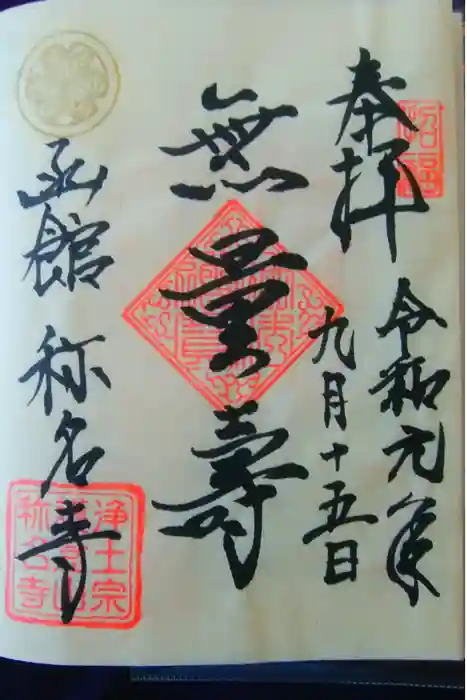 奉拝
令和元年
九月十五日
無量壽
函館 称名寺
招福
浄土宗
称名寺